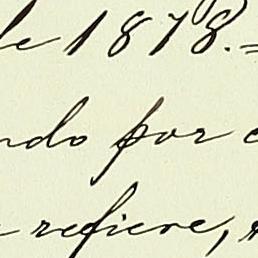 de 1878.=
ndo por
refiere,